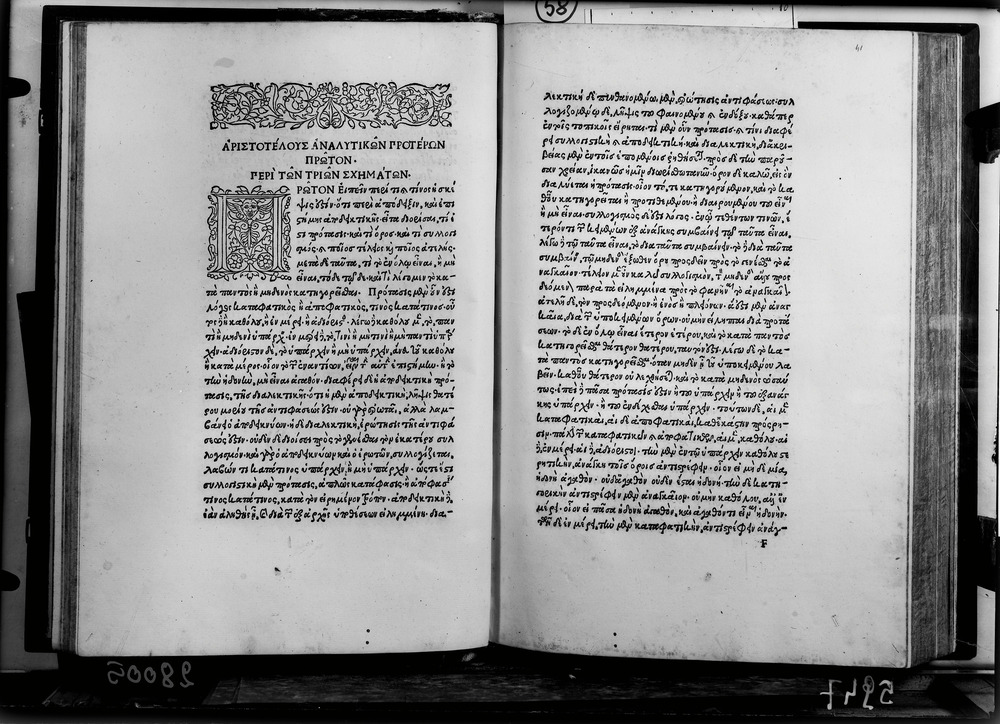 58
ἈΡΙΣΤΟΤΈΛΟΥΣ ἈΝΑΛΥΤΙΚΩ͂Ν ΠΡΟΤΈΡΩΝ
ΠΡΩ͂ΤΟΝ·
ΠΕΡῚ ΤΩ͂Ν ΤΡΙΩ͂Ν ΣΧΗΜΆΤΩΝ·
ΠΡΩΤΟΝ Εἰπεῖν περὶ τί καὶ τίνος ἡ σκέ
ψις ἐστίν· ὅτι περὶ ἀπόδειξιν, καὶ ἐπι
στήμης ἀποδεικτικῆς· εἶτα διορίσαι, τί ἐ
στι πρότασις· καὶ τί ὅρος· καὶ τί συλλογι
σμός· καὶ ποῖος τέλειος καὶ ποῖος ἀτελής·
μετὰ δὲ ταῦτα, τί τὸ ἐν ὅλῳ εἶναι, ἢ μὴ
εἶναι, τόδε τῷδε· καὶ τί λέγομεν τὸ κα-
τὰ παντὸς ἢ μηδενὸς κατηγορεῖσθαι. Πρότασις μὲν οὖν ἐστὶ
λόγος καταφατικὸς ἢ ἀποφατικός, τινὸς κατά τινος· οὗ
τος ἢ καθόλου, ἢ ἐν μέρει ἢ ἀδιόριστος· λέγω ἢ καθόλου μὲν, τὸ, παν
τὶ ἢ μηδενὶ ὑπάρχειν· ἐν μέρει δὲ, τὸ, τινὶ ἢ μὴ τινὶ ἢ μὴ παντὶ ὑπάρ
χειν· ἀδιόριστον δὲ, τὸ ὑπάρχειν ἢ μὴ ὑπάρχειν, ἄνευ τοῦ καθόλου
ἢ κατὰ μέρος· οἷον τὸ τῶν ἐναντίων, εἶναι τὴν αὐτὴν ἐπιστήμην· ἢ τὸ
τὴν ἡδονὴν, μὴ εἶναι ἀγαθόν· διαφέρει δὲ ἡ ἀποδεικτικὴ πρό-
τασις, τῆς διαλεκτικῆς· ὅτι ἡ μὲν ἀποδεικτικὴ, λῆψις θατέ
ρου μορίου τῆς ἀντιφάσεώς ἐστιν· οὐ γὰρ ἐρωτᾷ, ἀλλὰ λαμ-
βάνει ὁ ἀποδεικνύων· ἡ δὲ διαλεκτικὴ, ἐρώτησις τῆς ἀντιφά
σεώς ἐστιν· οὐδὲν δὲ διοίσει πρὸς τὸ γενέσθαι τὸν ἑκατέρου συλ
λογισμόν· καὶ γὰρ ὁ ἀποδεικνύων καὶ ὁ ἐρωτῶν, συλλογίζεται,
λαβών τι κατά τινος ὑπάρχειν, ἢ μὴ ὑπάρχειν· ὥστε ἔσται
συλλογιστικὴ μὲν πρότασις, ἁπλῶς κατάφασις· ἢ ἀπόφασίς
τινος κατά τινος, κατὰ τὸν εἰρημένον τρόπον· ἀποδεικτικὴ δὲ,
ἐὰν ἀληθὴς ᾖ, καὶ διὰ τῶν ἐξ ἀρχῆς ὑποθέσεων εἰλημμένη· δια-
41
λεκτικὴ δὲ πυνθανομένῳ μὲν, ἐρώτησις ἀντιφάσεως· συλ
λογιζομένῳ δὲ, λῆψις τοῦ φαινομένου καὶ ἐνδόξου· καθάπερ
ἐν τοῖς τοπικοῖς εἴρηται· τί μὲν οὖν πρότασις καὶ τίνι διαφέ
ρει συλλογιστικὴ καὶ ἀποδεικτικὴ· καὶ διαλεκτικὴ, δι' ἀκρι-
βείας μὲν ἐν τοῖς ἑπομένοις ῥηθήσεται· πρὸς δὲ τὴν παροῦ-
σαν χρείαν, ἱκανῶς ἡμῖν διωρίσθω τανῦν· ὅρον δὲ καλῶ, εἰς ὃν
διαλύεται ἡ πρότασις· οἷον τό, τε κατηγορούμενον, καὶ τὸ κα
θ' οὗ κατηγορεῖται ἢ προστιθεμένου ἢ διαιρουμένου τοῦ εἶναι
ἢ μὴ εἶναι· συλλογισμὸς δέ ἐστι λόγος· ἐν ᾧ τεθέντων τινῶν, ἕ
τερόν τι τῶν κειμένων ἐξ ἀνάγκης συμβαίνει τῷ ταῦτα εἶναι,
λέγω δὲ τῷ ταῦτα εἶναι, τὸ διὰ ταῦτα συμβαίνειν· τὸ δὲ διὰ ταῦτα
συμβαίνειν, τὸ μηδενὸς ἔξωθεν ὅρου προσδεῖν πρὸς τὸ γενέσθαι τὸ ἀ
ναγκαῖον· τέλειον μὲν οὖν καλῶ συλλογισμὸν, τὸν μηδενὸς ἄλλου προσ
δεόμενον παρὰ τὰ εἰλημμένα πρὸς τὸ φανῆναι τὸ ἀναγκαῖον·
ἀτελῆ δὲ, τὸν προσδεόμενον ἢ ἑνὸς ἢ πλειόνων· ἅ ἐστι μὲν ἀναγ
καῖα, διὰ τῶν ὑποκειμένων ὅρων· οὐ μὴν εἴληπται διὰ προτά
σεων· τὸ δὲ ἐν ὅλῳ εἶναι ἕτερον ἑτέρου, καὶ τὸ κατὰ παντὸς
κατηγορεῖσθαι θάτερον θατέρου, ταυτόν ἐστι· λέγω δὲ τὸ κα-
τὰ παντὸς κατηγορεῖσθαι· ὅταν μηδὲν ᾖ τοῦ ὑποκειμένου λα
βεῖν· καθ' οὗ θάτερον οὐ λεχθήσεται· καὶ τὸ κατὰ μηδενὸς ὡσαύ
τως· ἐπεὶ δὲ πᾶσα πρότασίς ἐστιν ἢ τοῦ ὑπάρχειν ἢ τοῦ ἐξ ἀνάγ
κης ὑπάρχειν· ἢ τοῦ ἐνδέχεσθαι ὑπάρχειν· τούτων δὲ, αἱ μὲν
καταφατικαὶ, αἱ δὲ ἀποφατικαὶ, καθ' ἑκάστην πρόσρη-
σιν· πάλιν τῶν καταφατικῶν καὶ ἀποφατικῶν, αἱ μὲν, καθόλου· αἱ
δὲ, ἐν μέρει· αἱ δὲ, ἀδιόριστοι· τὴν μὲν ἐν τῷ ὑπάρχειν καθόλου στε
ρητικὴν, ἀνάγκη τοῖς ὅροις ἀντιστρέφειν· οἷον εἰ μηδεμία,
ἡδονὴ ἀγαθόν· οὐδ' ἀγαθὸν οὐδὲν ἔσται ἡδονή· τὴν δὲ κατη-
γορικὴν ἀντιστρέφειν μὲν ἀναγκαῖον· οὐ μὴν καθόλου, ἀλλ' ἐν
μέρει· οἷον εἰ πᾶσα ἡδονὴ ἀγαθὸν, καὶ ἀγαθόν τι εἶναι ἡδονήν·
τῶν δὲ ἐν μέρει, τὴν μὲν καταφατικὴν, ἀντιστρέφειν ἀνάγ-
F
28005
5947